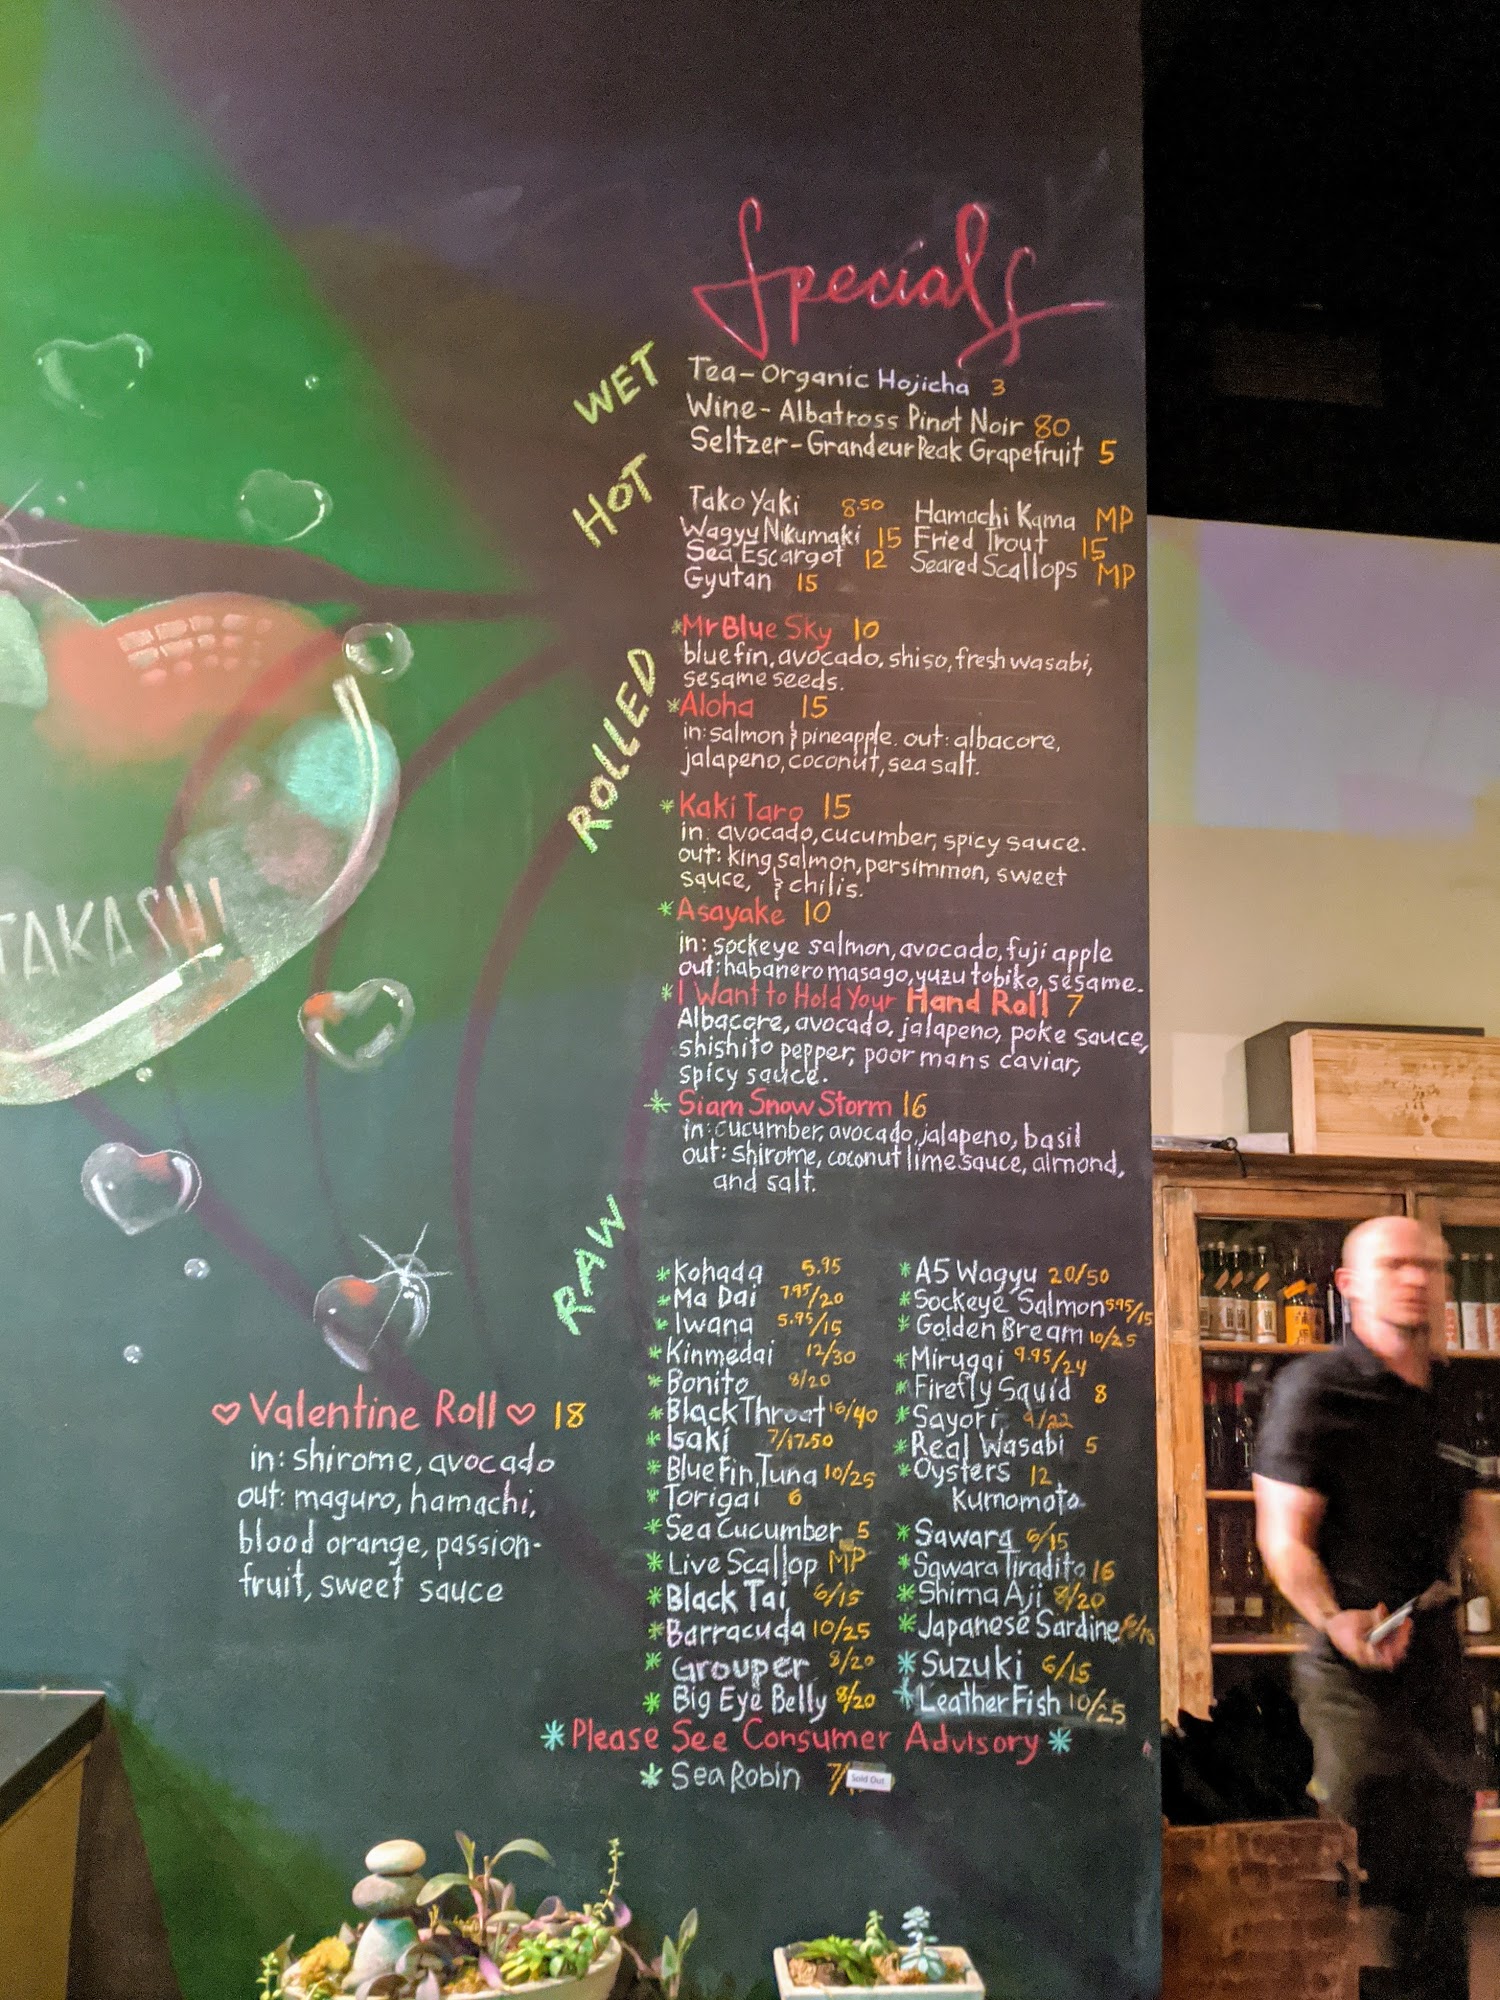 Specials
WET
Tea-Organic Hojicha 3
Wine-Albatross Pinot Noir 80
Seltzer-Grandeur Peak Grapefruit 5
HOT
Tako Yaki 8.50
Wagyu Nikumaki 15
Sea Escargot 12
Gyutan 15
Hamachi Kama MP
Fried Trout 15
Seared Scallops MP
ROLLED
*Mr Blue Sky 10
bluefin, avocado, shiso, fresh wasabi,
sesame seeds.
*Aloha 15
in: salmon & pineapple. out: albacore,
jalapeno, coconut, sea salt.
*Kaki Taro 15
in: avocado, cucumber, spicy sauce.
out: king salmon, persimmon, sweet
sauce, & chilis.
*Asayake 10
in: sockeye salmon, avocado, fuji apple
out: habanero masago, yuzu tobiko, sesame.
*I Want to Hold Your Hand Roll 7
Albacore, avocado, jalapeno, poke sauce,
shishito pepper, poor mans caviar,
spicy sauce.
*Siam Snow Storm 16
in: cucumber, avocado, jalapeno, basil
out: shirome, coconut lime sauce, almond,
and salt.
RAW
*Kohada 5.95
*Ma Dai 7.95/20
*Iwana 5.95/15
*Kinmedai 12/30
*Bonito 8/20
*Black Throat 16/40
*Isaki 7/17.50
*Blue Fin Tuna 10/25
*Torigai 6
*Sea Cucumber 5
*Live Scallop MP
*Black Tai 6/15
*Barracuda 10/25
*Grouper 8/20
*Big Eye Belly 8/20
*A5 Wagyu 20/50
*Sockeye Salmon 5.95/15
*Golden Bream 10/25
*Mirugai 9.95/24
*Firefly Squid 8
*Sayori 9/22
*Real Wasabi 5
*Oysters 12
Kumomoto
*Sawara 6/15
*Sawara Tiradito 16
*Shima Aji 8/20
*Japanese Sardine
*Suzuki 6/15
*Leather Fish 10/25
*Please See Consumer Advisory*
*Sea Robin 7/
Sold Out
TAKASHI
♡Valentine Roll♡ 18
in: shirome, avocado
out: maguro, hamachi,
blood orange, passion-
fruit, sweet sauce